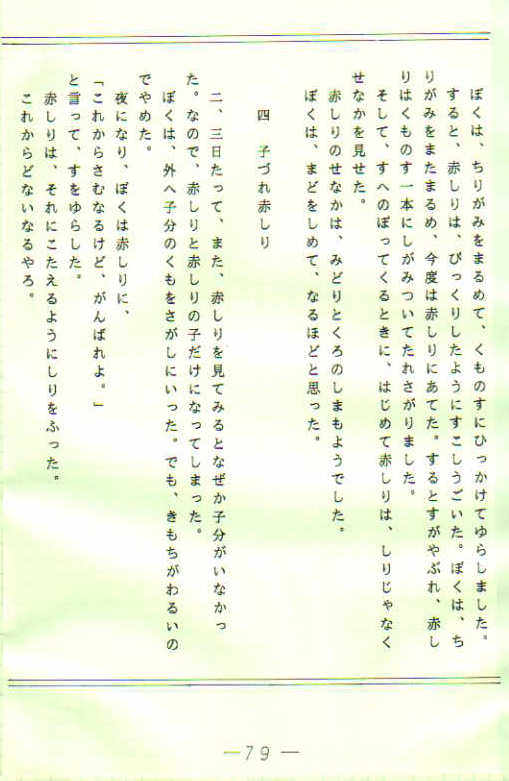 ぼくは、ちりがみをまるめて、くものすにひっかけてゆらしました。
すると、赤しりは、びっくりしたようにすこしうごいた。ぼくは、ち
りがみをまたまるめ、今度は赤しりにあてた。するとすがやぶれ、赤し
りはくものす一本にしがみついてたれさがりました。
そして、すへのぼってくるときに、はじめて赤しりは、しりじゃなく
せなかを見せた。
赤しりのせなかは、みどりとくろのしまもようでした。
ぼくは、まどをしめて、なるほどと思った。
四 子づれ赤しり
二、三日たって、また、赤しりを見てみるとなぜか子分がいなかっ
た。なので、赤しりと赤しりの子だけになってしまった。
ぼくは、外へ子分のくもをさがしにいった。でも、きもちがわるいの
でやめた。
夜になり、ぼくは赤しりに、
「これからさむなるけど、がんばれよ。」
と言って、すをゆらした。
赤しりは、それにこたえるようにしりをふった。
これからどないなるやろ。
—79—